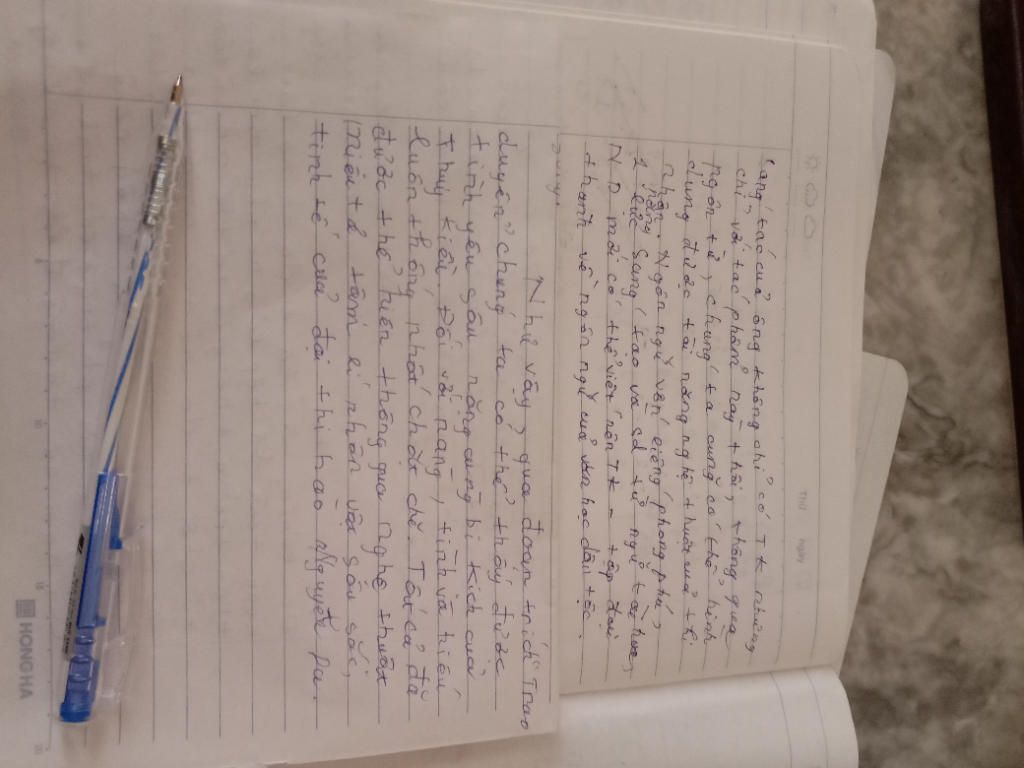 Thứ
Ngày
sáng tác của ông không chỉ có TK nhưng
chỉ với tác phẩm này thôi, thông qua
ngôn từ, chúng ta cũng có thể hình
dung được tài năng nghệ thuật của thi
nhân. Ngôn ngữ vốn giống phong phú,
sáng tạo và sd từ ngữ tài hoa,
N D mới có thể viết nên TK - tập đại
thành về ngôn ngữ của văn học dân tộc.
Như vậy, qua đoạn trích "Trao
duyên" chúng ta có thể thấy được
tình yêu sâu nặng cùng bi kịch của
Thuý Kiều. Đối với nàng, tình và hiếu
luôn thống nhất chặt chẽ. Tất cả đã
được thể hiện thông qua nghệ thuật
miêu tả tâm lí nhân vật sâu sắc,
tinh tế của đại thi hào Nguyễn Du.
HONG HA